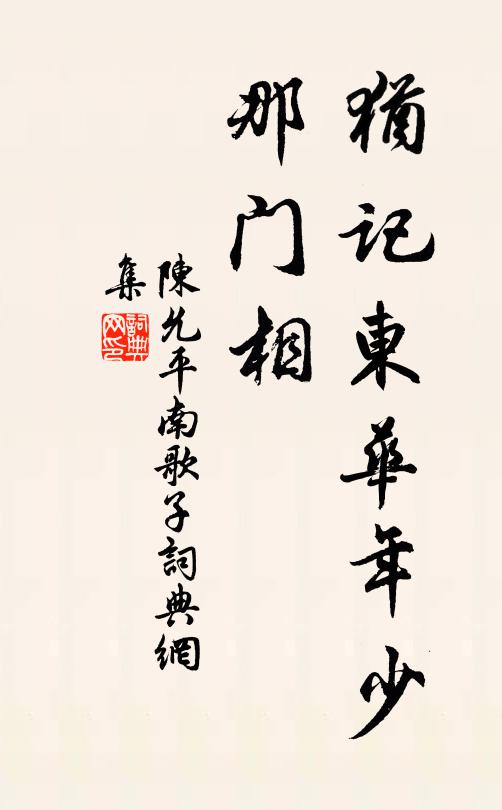 猶記東華年少
那门相
陳允平南歌子詞典網
集
詞典網印